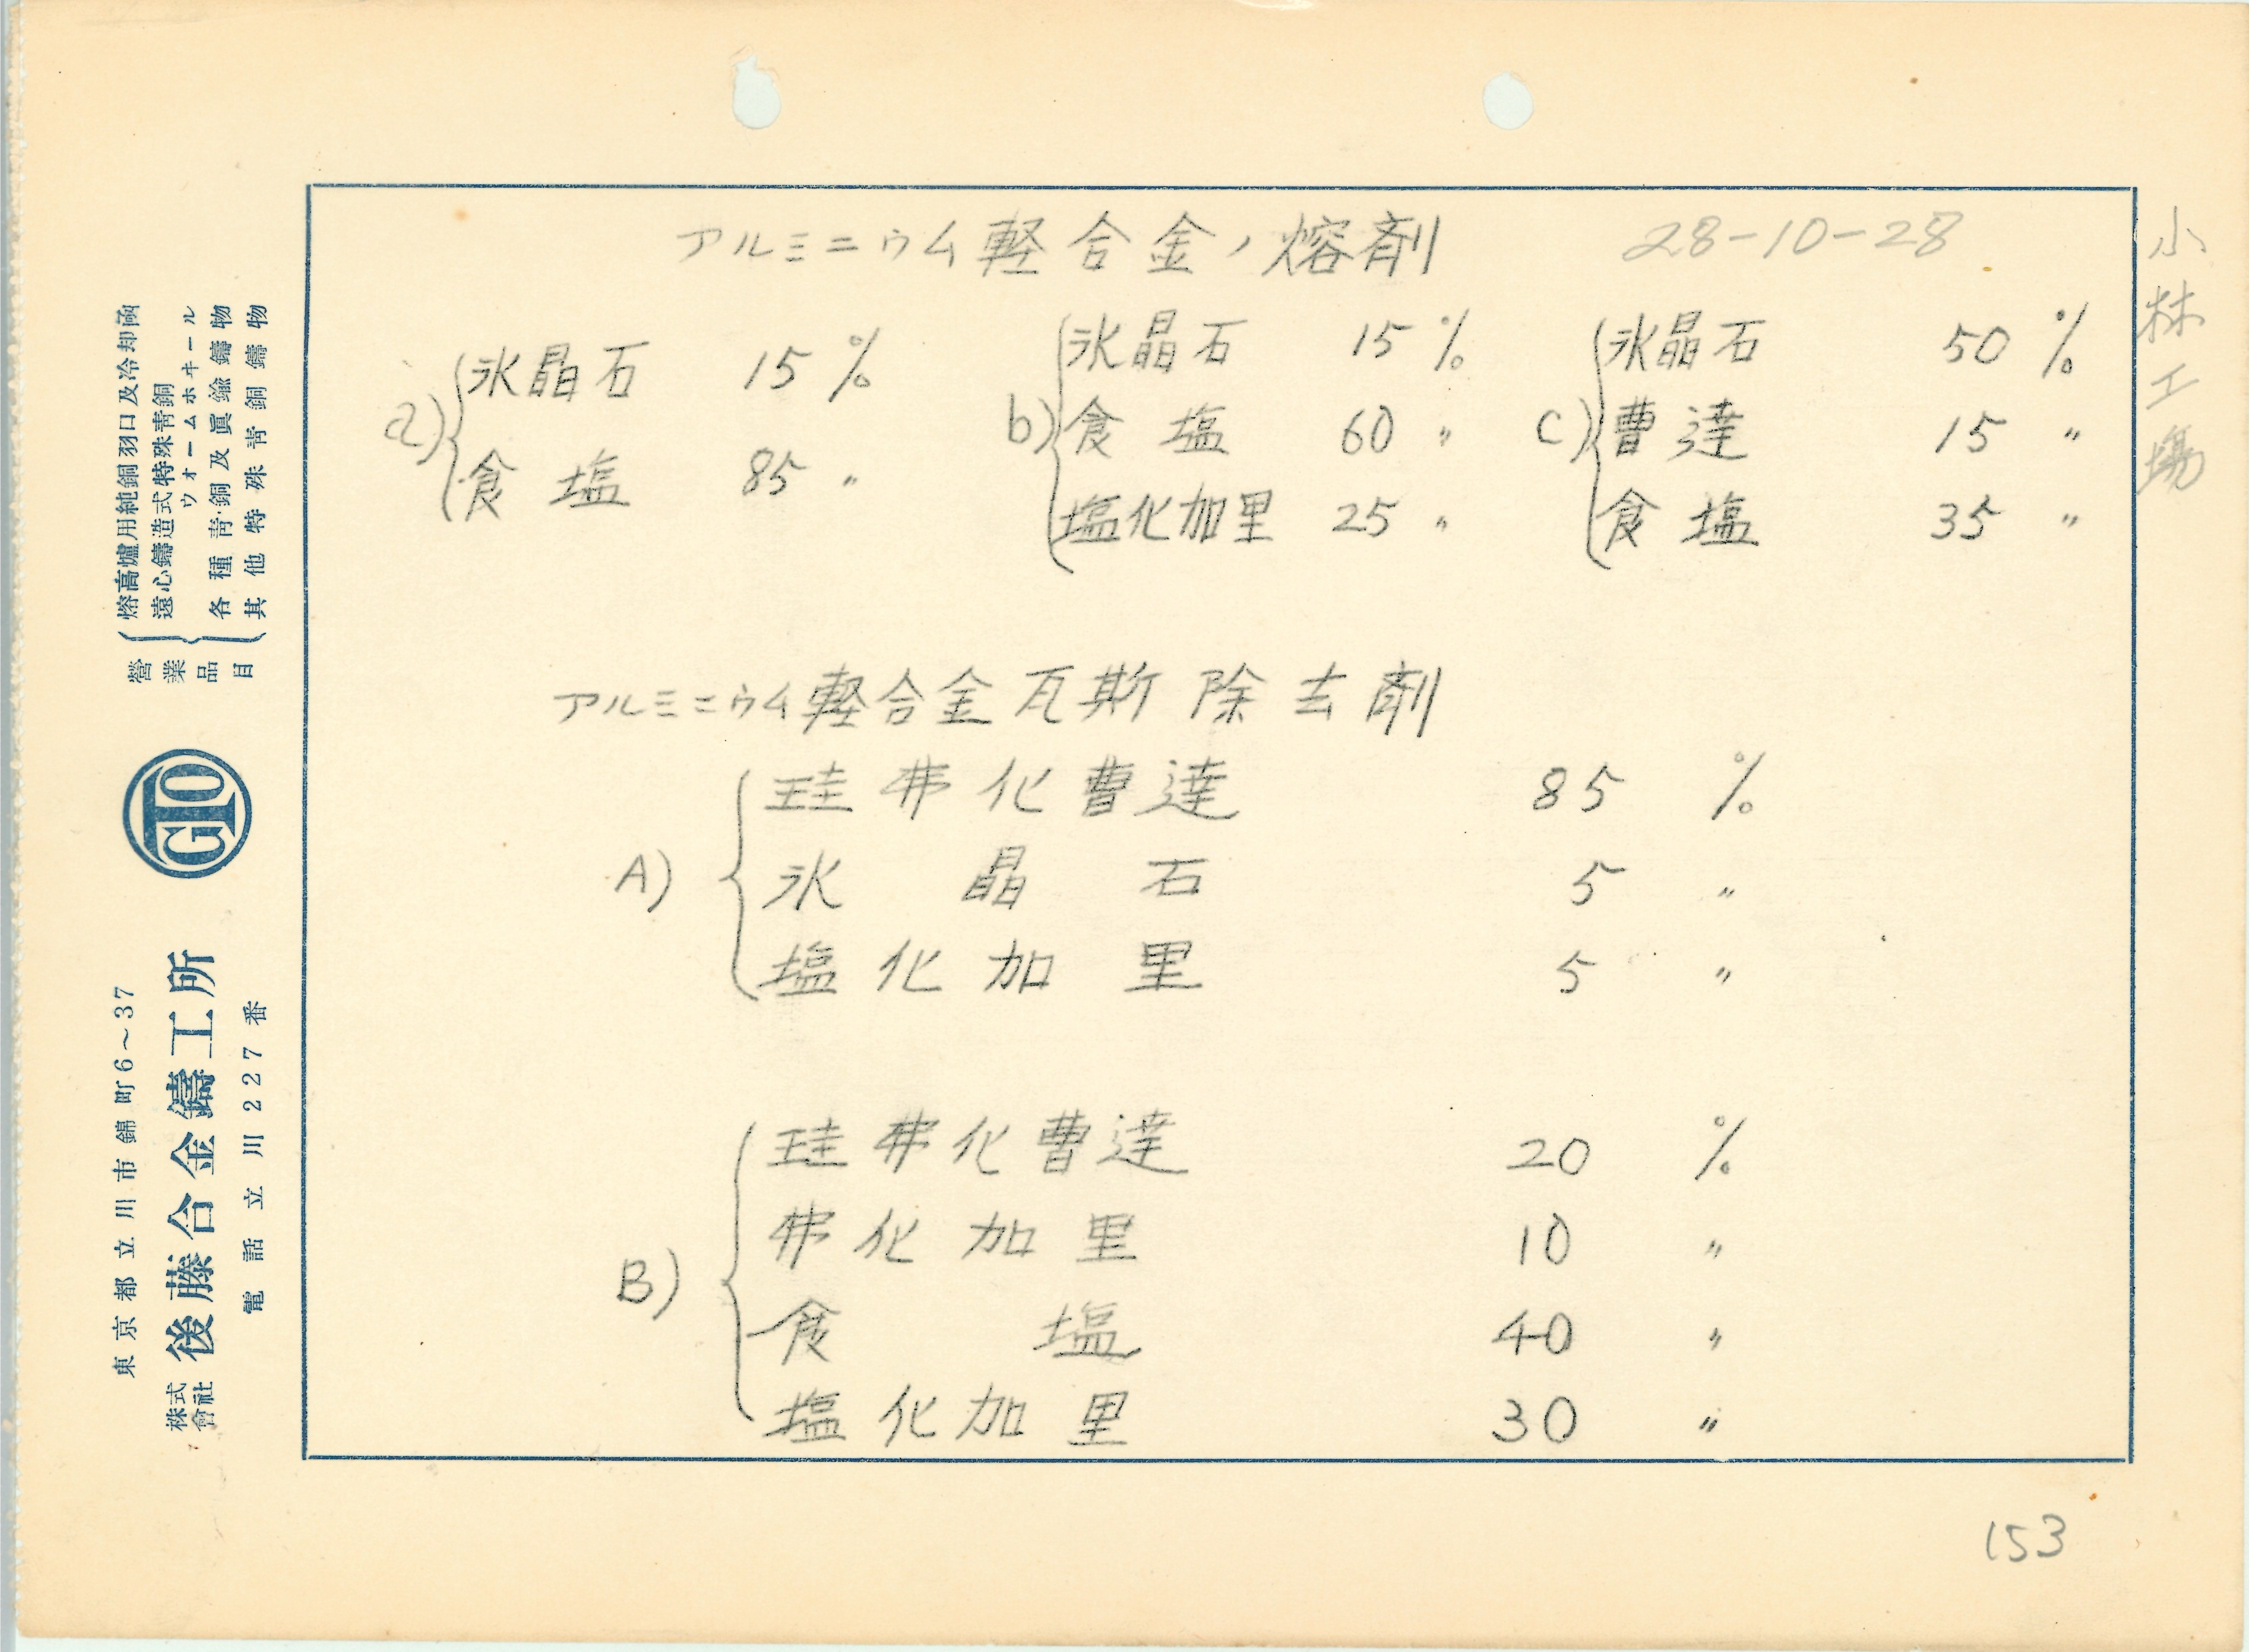 アルミニウム軽合金ノ熔剤 28-10-28
小林工場
a) 氷晶石 15 %
食塩 85 〃
b) 氷晶石 15 %
食塩 60 〃
塩化加里 25 〃
c) 氷晶石 50 %
曹達 15 〃
食塩 35 〃
アルミニウム軽合金瓦斯除去剤
A) 珪弗化曹達 85 %
氷晶石 5 〃
塩化加里 5 〃
B) 珪弗化曹達 20 %
弗化加里 10 〃
食塩 40 〃
塩化加里 30 〃
153
營業品目
熔高爐用純銅羽口及冷却函
遠心鑄造式特殊靑銅
ウォームホヰール
各種靑銅及眞鍮鑄物
其他特殊靑銅鑄物
GTO
東京都立川市錦町6～37
株式會社 後藤合金鑄工所
電話立川227番